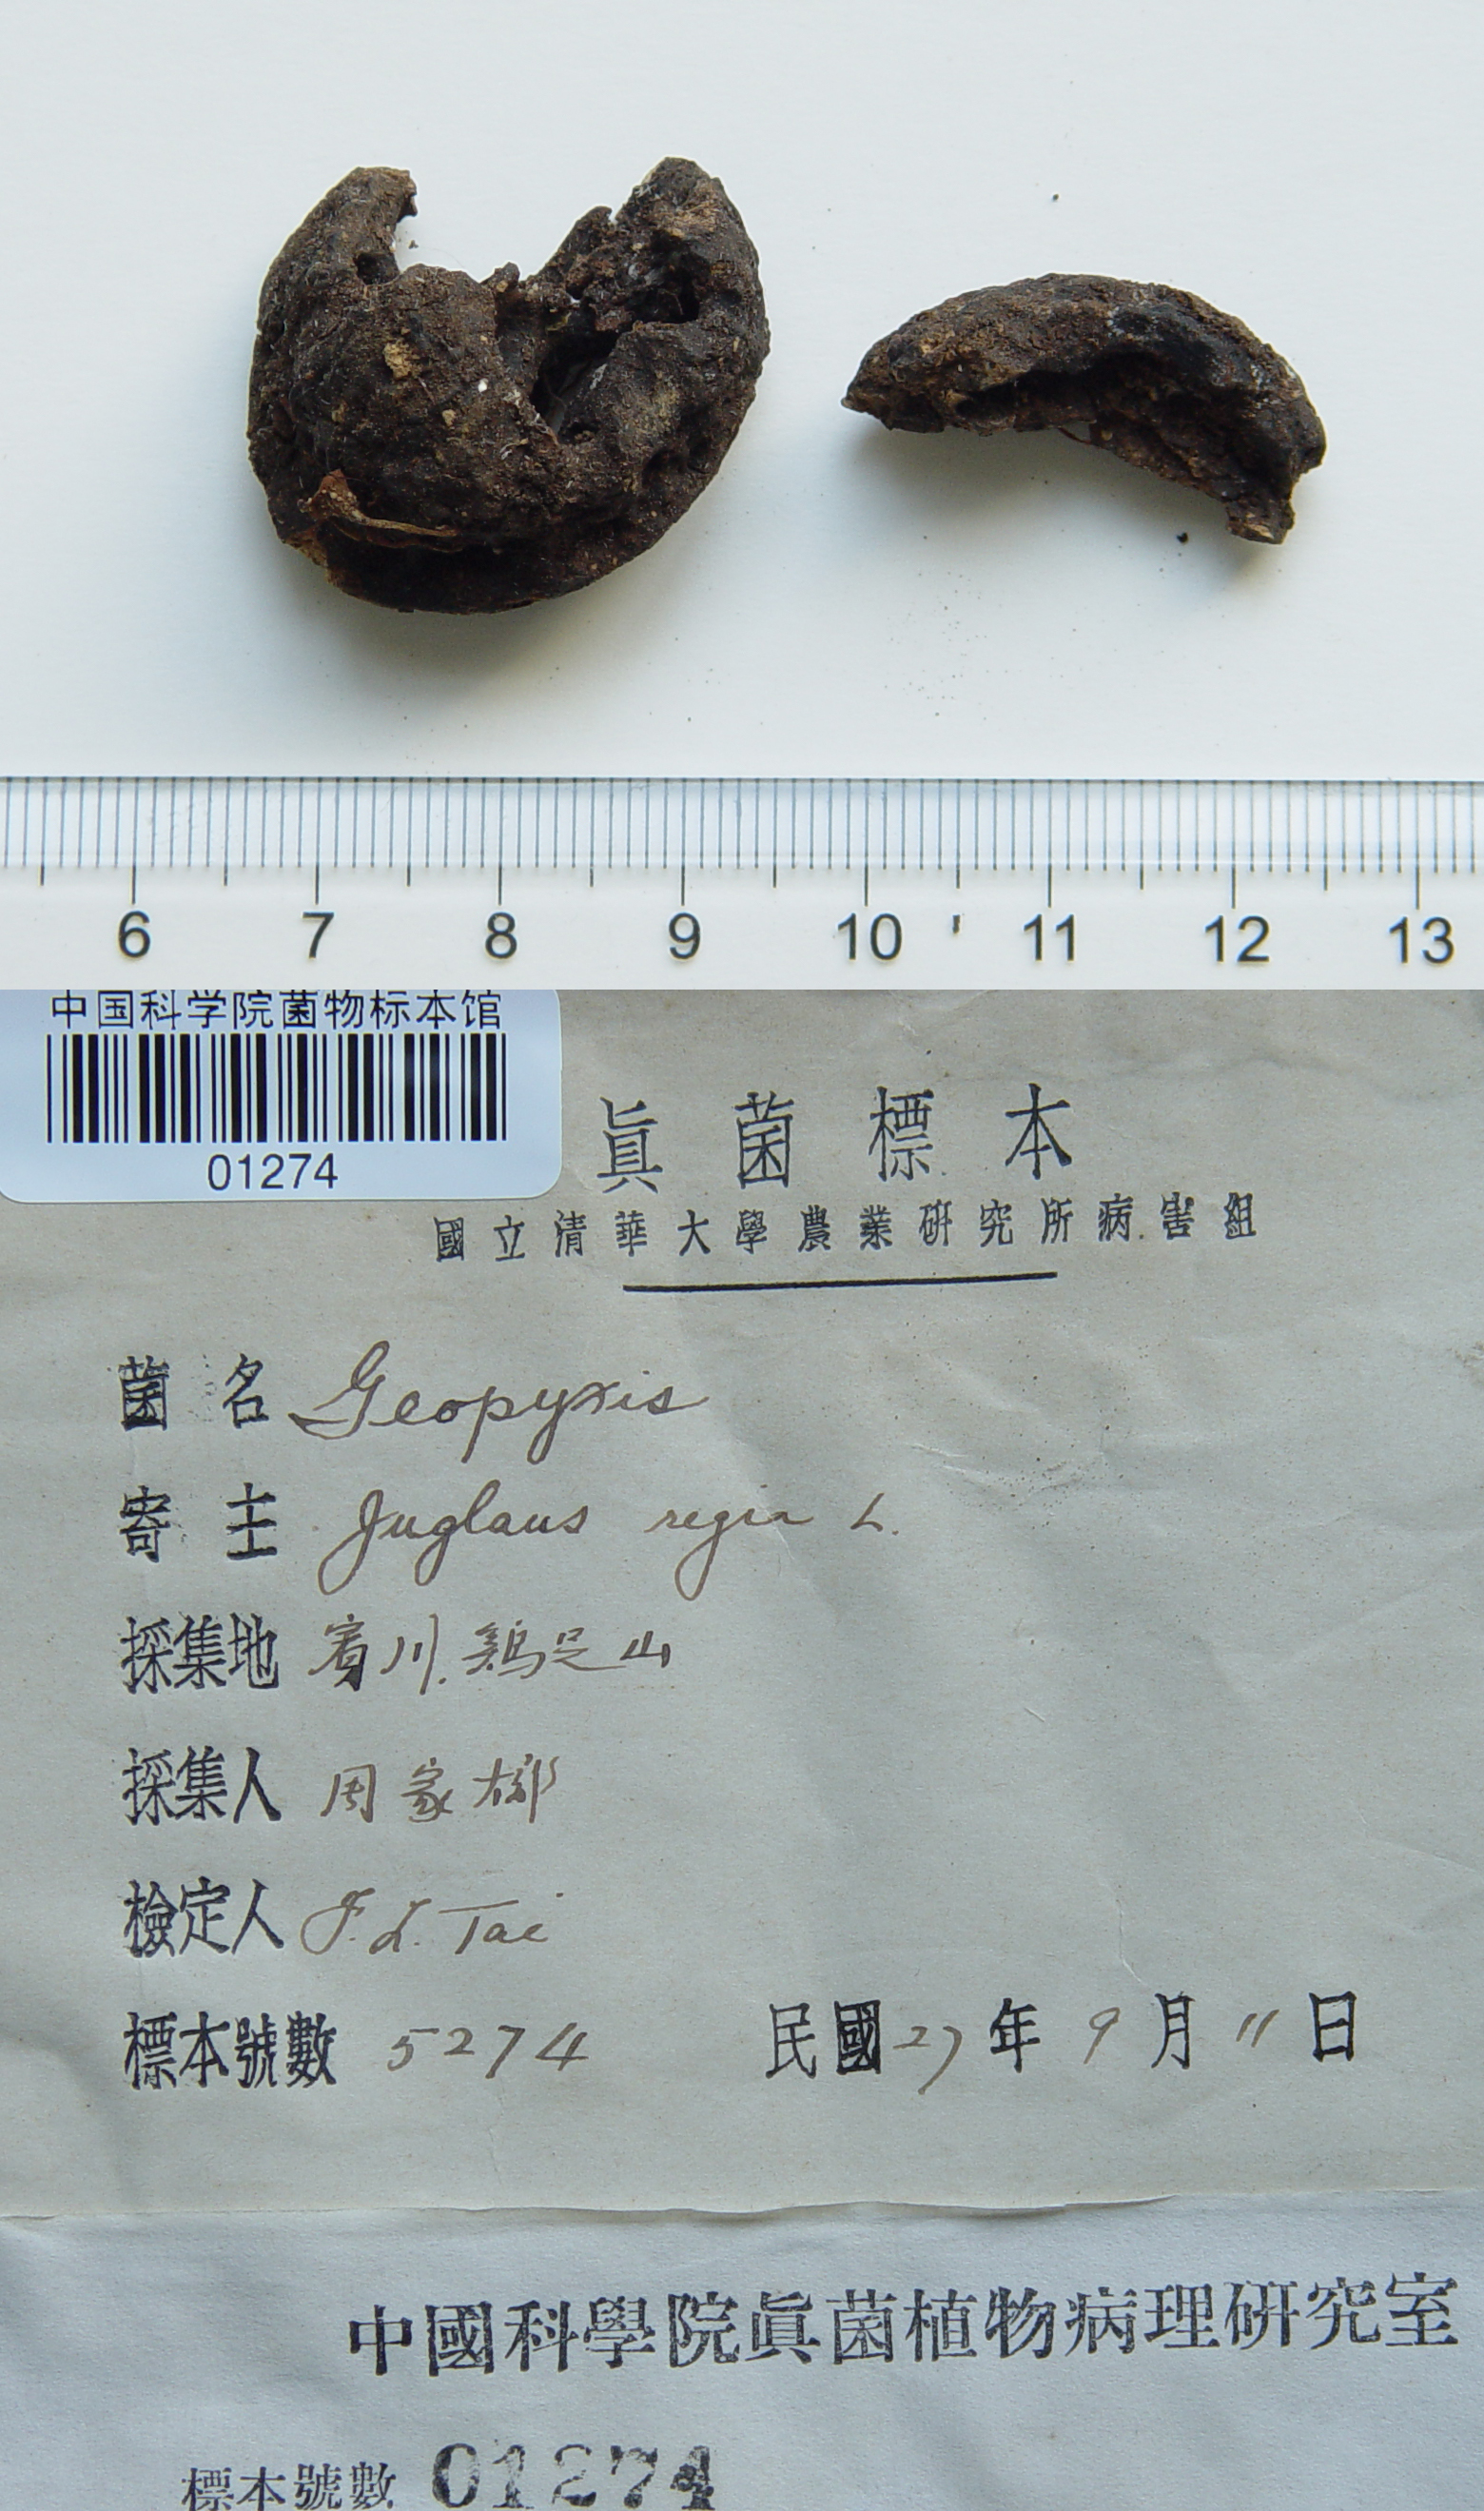 6 7 8 9 10 11 12 13
中国科学院菌物标本馆
01274
眞菌標本
國立清華大學農業研究所病害組
菌名 Geopyxis
寄主 Juglans regia L.
採集地 賓川 鷄足山
採集人 周家
檢定人 F. L. Tai
標本號數 5274 民國27年9月11日
中國科學院眞菌植物病理研究室
標本號數 01274